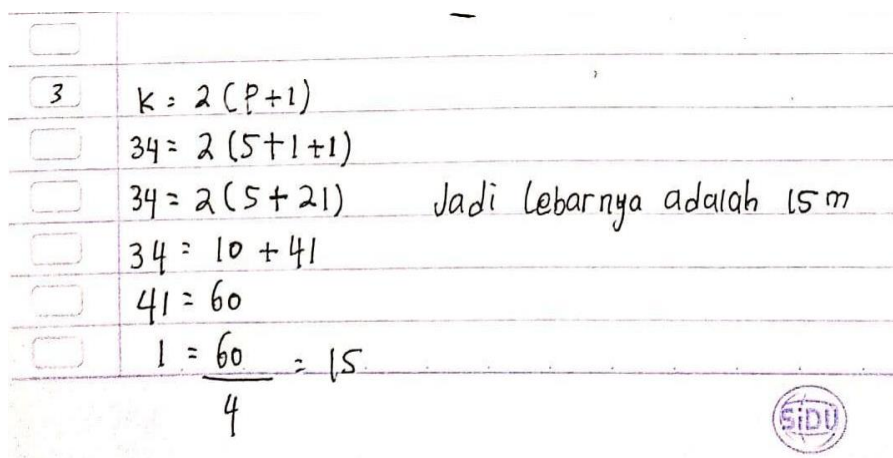 3 K = 2 (P+1)
34 = 2 (5+1+1)
34 = 2 (5 + 21) Jadi lebarnya adalah 15 m
34 = 10 + 41
41 = 60
1 = 60/4 = 15
SiDU